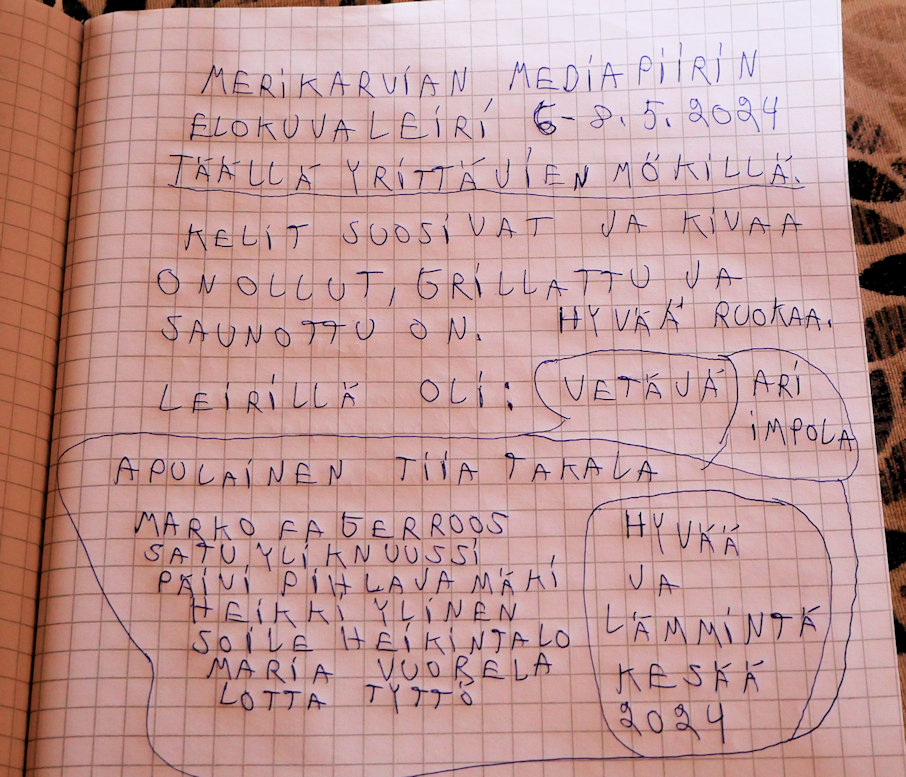 MERIKARVIAN MEDIAPIIRIN
ELOKUVALEIRI 6-8.5.2024
TÄÄLLÄ YRITTÄVIEN MÖKILLÄ.
KELIT SUOSIVAT JA KIVAA
ON OLLUT, GRILLATTU JA
SAUNOTTU ON. HYVÄÄ RUOKAA.
LEIRILLÄ OLI: VETÄVÄ ARI
IMPOLA
APULAINEN TIIA TAKALA
MARKO FAGERROOS
SATU YLIKNUUSSI
PÄIVI PIHLAVAMÄKI
HEIKKI YLINEN
SOILE HEIKINTALO
MARIA VUORELA
LOTTA TYTTÖ
HYVÄÄ
JA
LÄMMINTÄ
KESÄÄ
2024